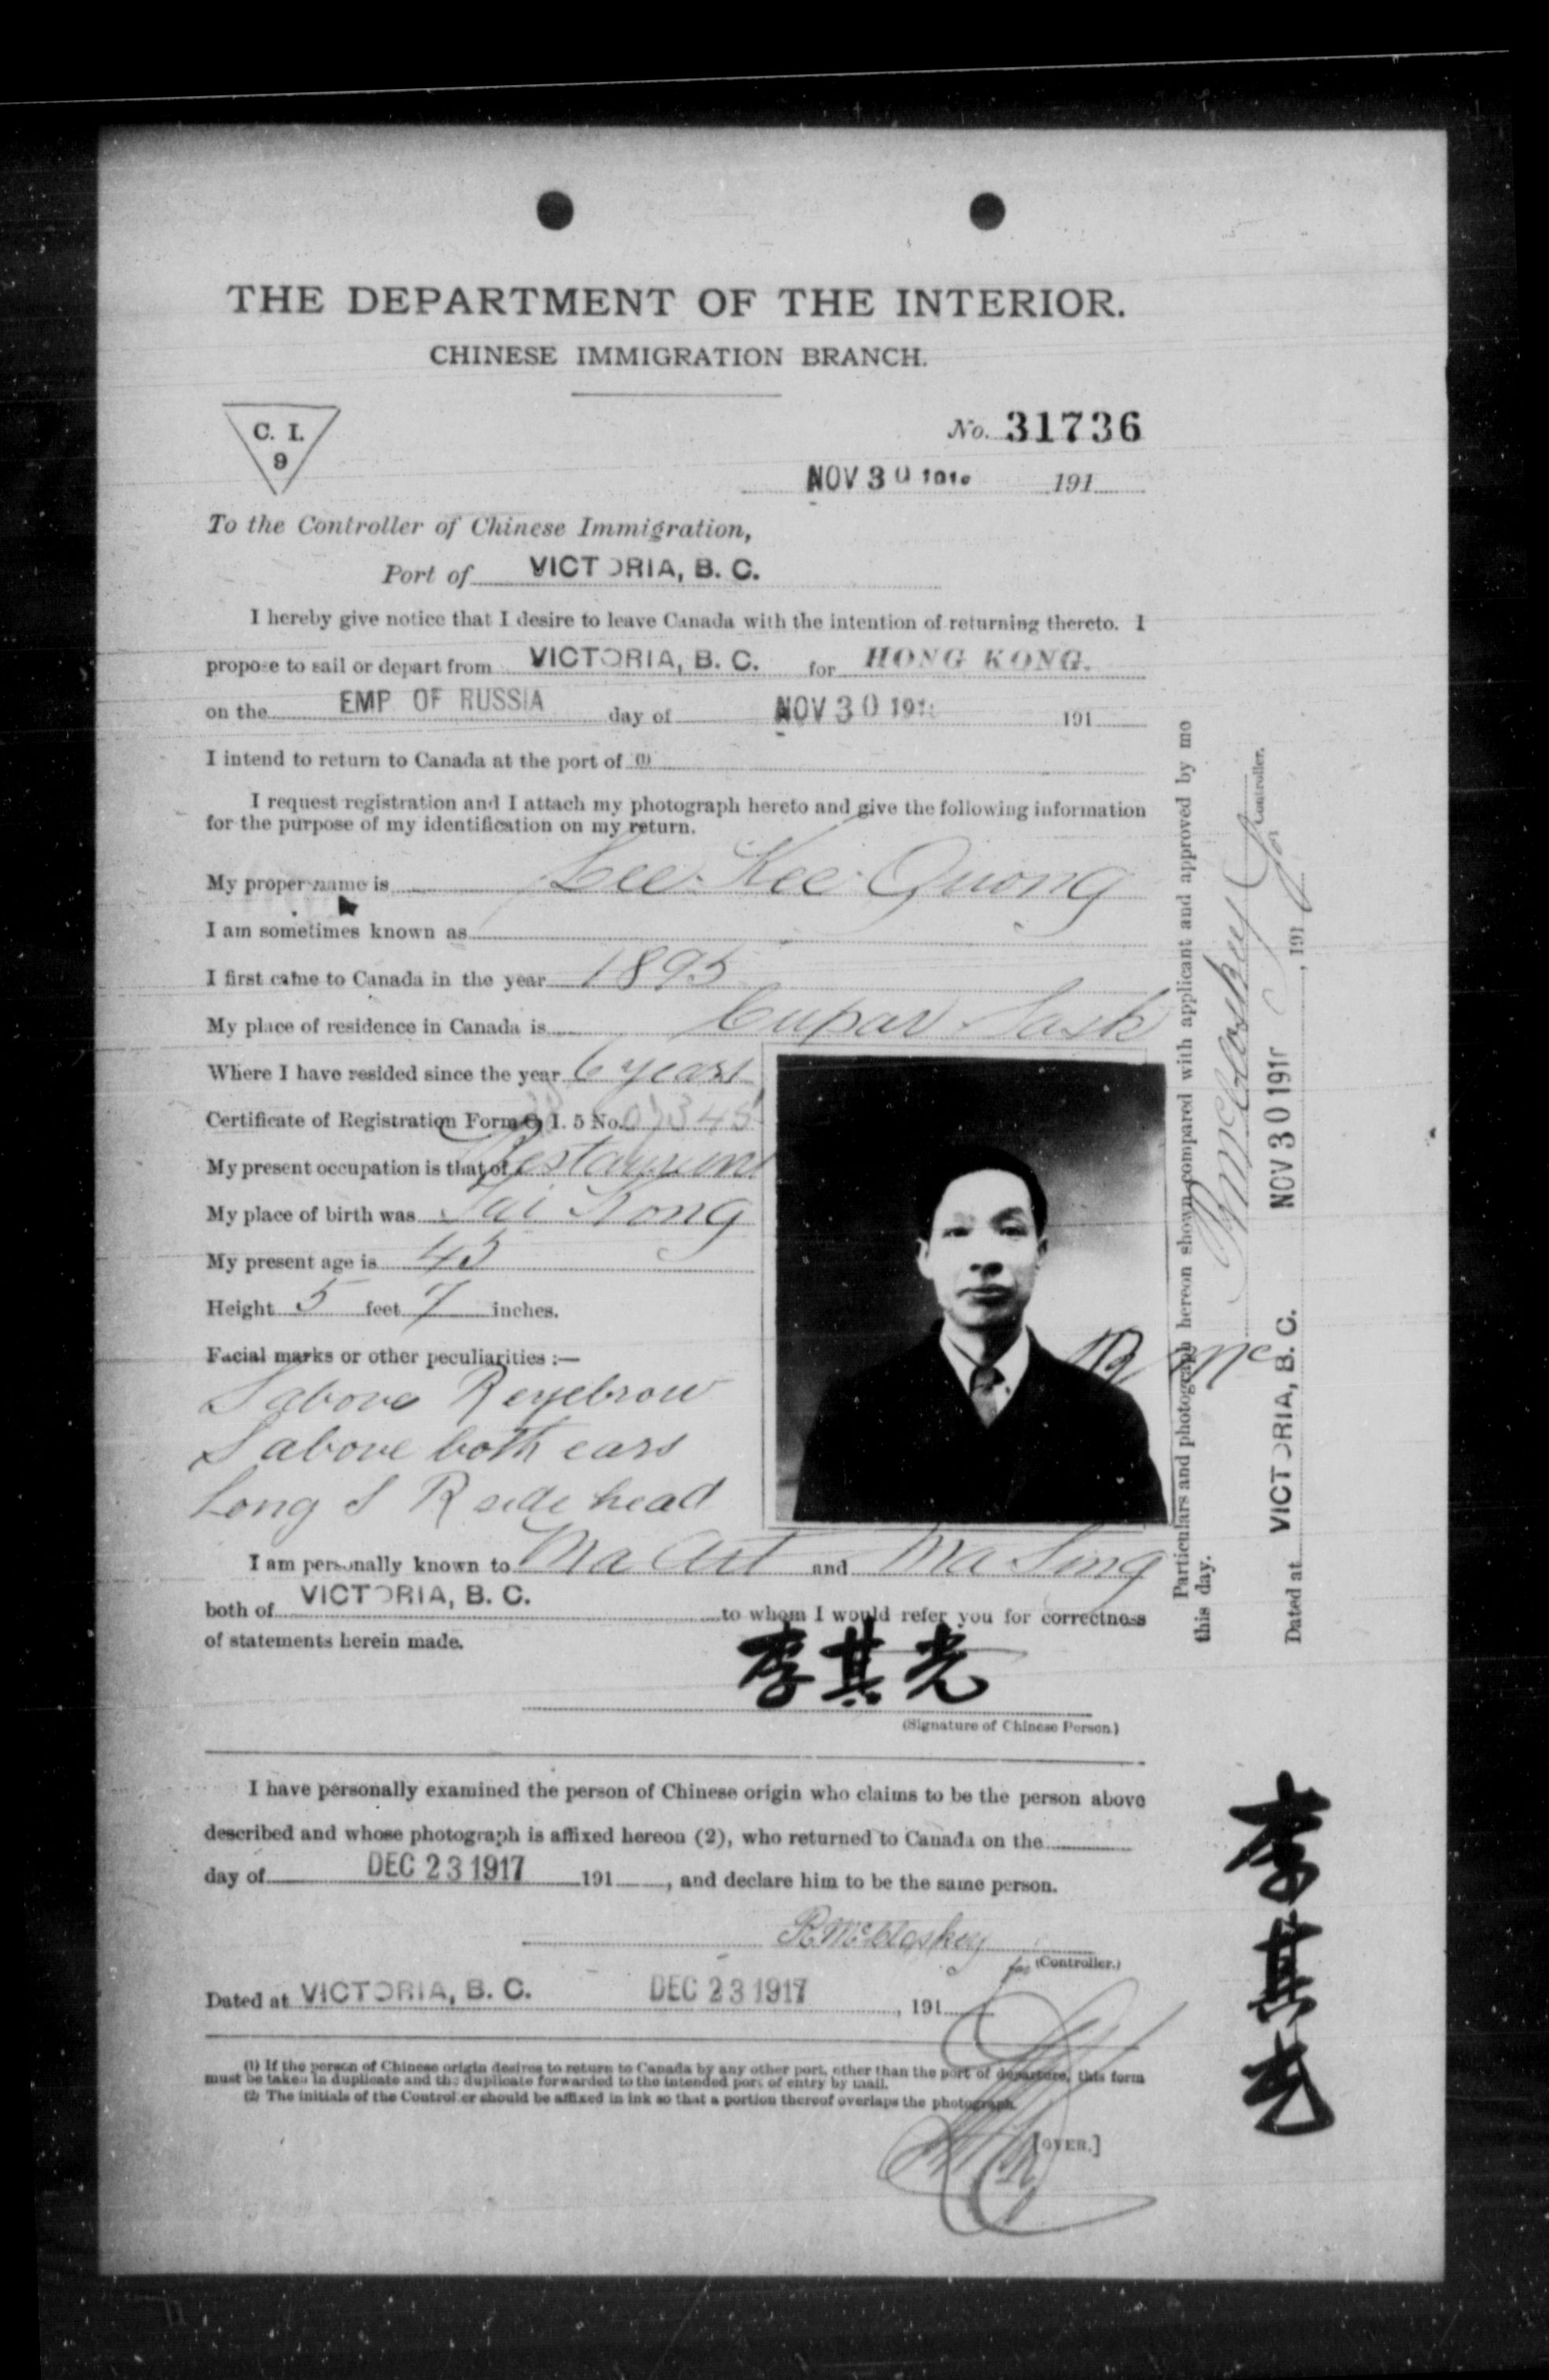 THE DEPARTMENT OF THE INTERIOR.
CHINESE IMMIGRATION BRANCH.
C. I.
9
No. 31736
NOV 30 191
To the Controller of Chinese Immigration,
Port of VICTORIA, B. C.
I hereby give notice that I desire to leave Canada with the intention of returning thereto. I
propose to sail or depart from VICTORIA, B. C. for HONG KONG.
on the EMP OF RUSSIA day of NOV 30 191 191
I intend to return to Canada at the port of (1)
I request registration and I attach my photograph hereto and give the following information
for the purpose of my identification on my return.
My proper name is Lee Kee Quong
I am sometimes known as
I first came to Canada in the year 1895
My place of residence in Canada is Cupar Sask
Where I have resided since the year 6 years
Certificate of Registration Form C. I. 5 No.
My present occupation is that of
My place of birth was Sai Kong
My present age is 45
Height 5 feet 7 inches.
Facial marks or other peculiarities :—
S above R eyebrow
S above both ears
Long S R side head
R Mc
I am personally known to Ma Art and Ma Sing
both of VICTORIA, B. C. to whom I would refer you for correctness
of statements herein made.
李其光
(Signature of Chinese Person.)
I have personally examined the person of Chinese origin who claims to be the person above
described and whose photograph is affixed hereon (2), who returned to Canada on the
day of DEC 23 1917 191 , and declare him to be the same person.
R McCloskey
for (Controller.)
Dated at VICTORIA, B. C. DEC 23 1917 , 191
(1) If the person of Chinese origin desires to return to Canada by any other port, other than the port of departure, this form
must be taken in duplicate and the duplicate forwarded to the intended port of entry by mail.
(2) The initials of the Controller should be affixed in ink so that a portion thereof overlaps the photograph.
[OVER.]
Particulars and photograph hereon shown compared with applicant and approved by me
this day.
R McCloskey for Controller.
Dated at VICTORIA, B. C. NOV 30 191 , 191
李其光